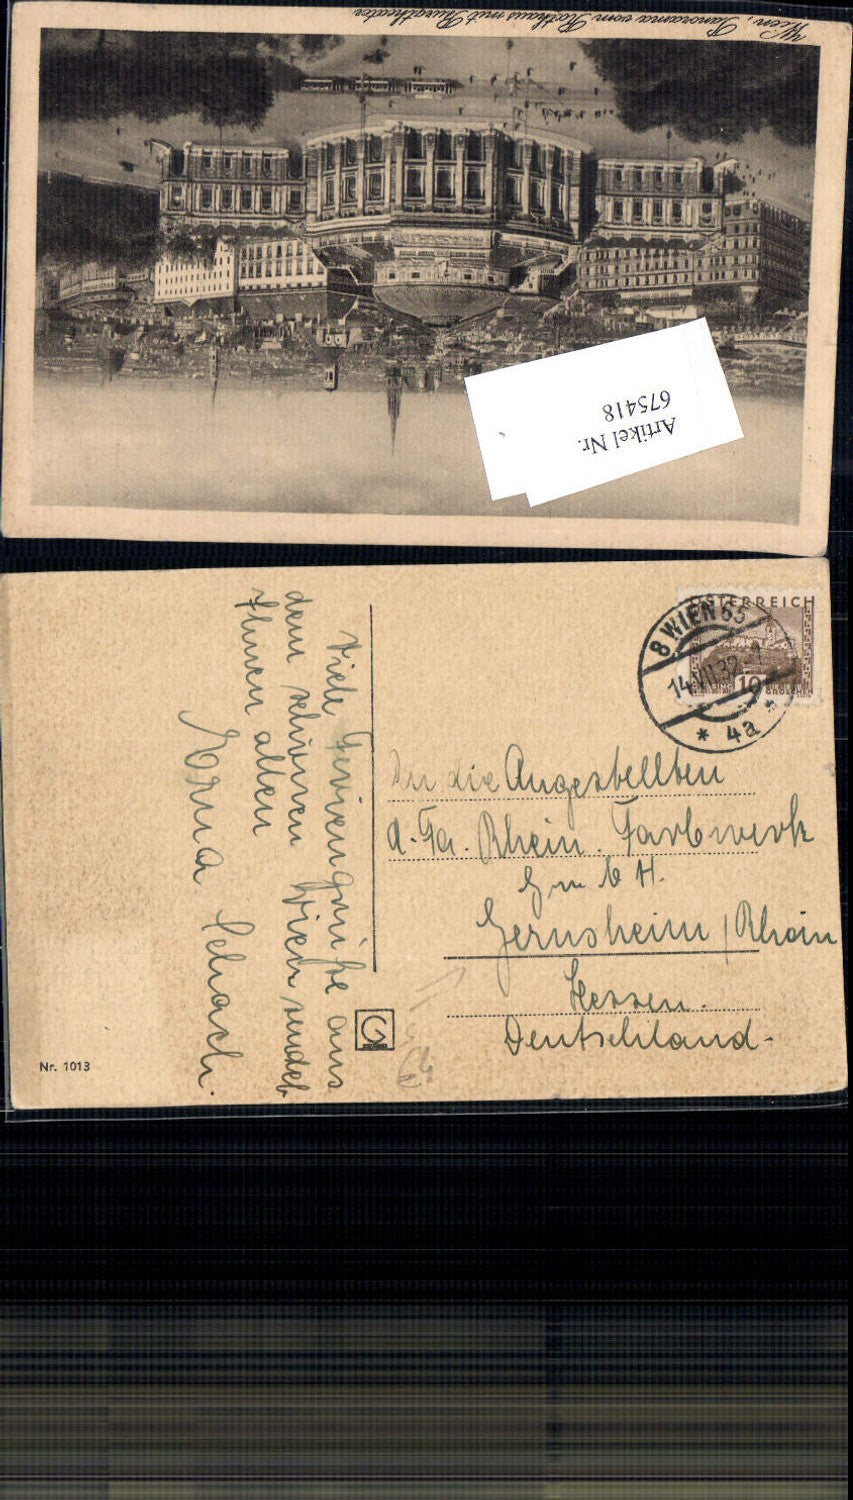 Wien, Panorama vom Rathaus mit Burgtheater
Artikel Nr.
675418
ÖSTERREICH
10
GROSCHEN
8 WIEN 65
14.VII.32
* 4a *
An die Angestellten
d. Fa. Rhein. Farbwerk
G m b H.
Gernsheim / Rhein
Hessen.
Deutschland -
Viele Feriengrüße aus
dem schönen Wien sendet
Ihnen allen
Erna Schach.
G
Nr. 1013